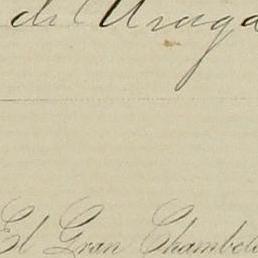 de Uruga
El Gran Chambel